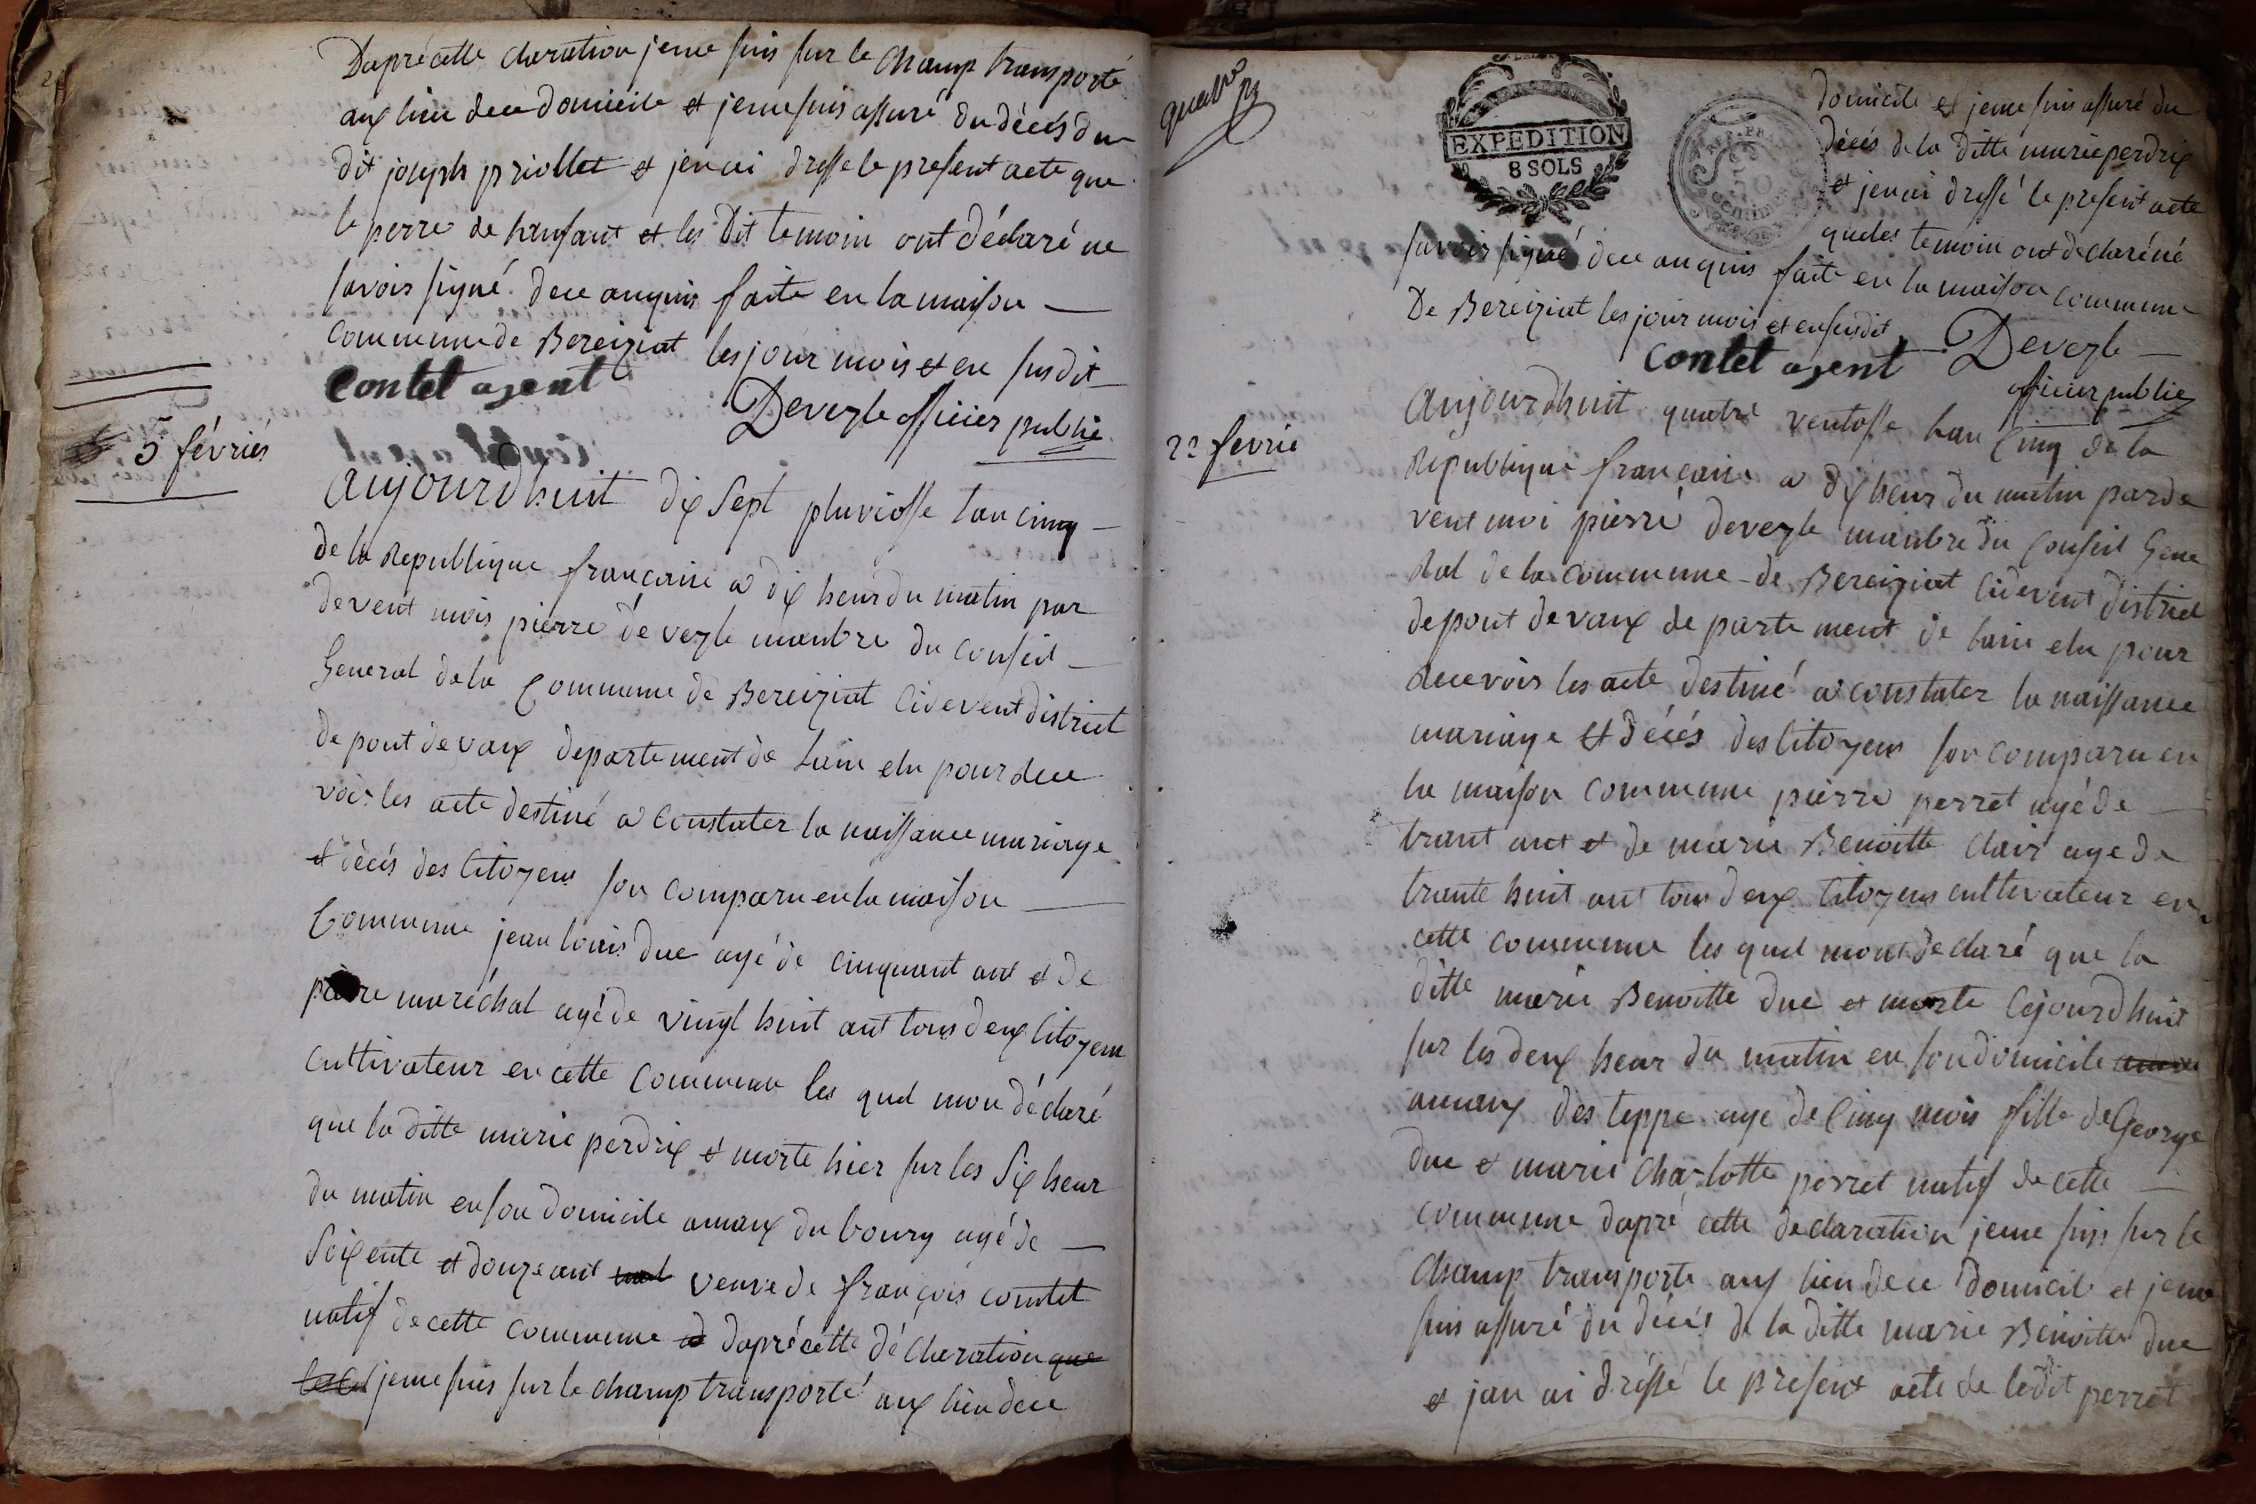 Daprécette claration jeme suis sur le champ transporté
aux lieu dece domicile et jemesuis assuré du décés du
dit joseph priollet et jenai dressé le present acte que
le perre de hanfant et les dit temoin ont déclaré ne
savois signé dece anquis faite en la maison
commune de Bereiziat les jour mois et en susdit
contet agent
Deveyle officier public
5 févriés
aujourdhuit dix sept pluviosse lan cinq
de la Republique francaise a dix heur du matin par
devent mois pierre deveyle manbre du conseil
General dela Commune de Bereiziat cidevent district
de pont devaux departement de Lain elu pour rece
vois les acte destiné a constater la naissance mariage
et décés des Citoyens son comparu en la maison
Commune jean louis duc agé de cinquant ant et de
pierre maréchal agéde vingt huit ant tous deux Citoyens
cultivateur en cette commune les quel mon déclaré
que la ditte marie perdrix et morte hier sur les six heur
du matin en son domicile amaux du bourg agé de
soixente et douze ant veuve de françois contet
natif de cette commune daprécette décleration que
jeme suis sur le champ transporté aux lieu dece
EXPEDITION
8 SOLS
domicile et jeme suis assuré du
décés de la ditte marie perdrix
et jenai dressé le present acte
queles temoin ont declaréné
savois signé dece anquis faite en la maison commune
De Bereiziat les jour mois et en susdit
contet agent
Deveyle
officier public
22 fevrié
aujourdhuit quatre ventosse lan Cinq de la
Republique française a dix heur du matin par de
vent moi pierre deveyle manbre du Conseil Gene
Ral de la commune de Bereiziat Cidevent district
depont devaux de parte ment de Lain elu pour
Recevois les acte destiné a constater la naissance
mariage et décés des Citoyens son comparu en
la maison commune pierre perret agé de
trant ant et de marie Benoitte Clair age de
trante huit ant tous deux Citoyens cultivateur en
cette commune les quel mont declaré que la
ditte marie Benoitte duc et morte Cejourdhuit
sur les deux heur du matin en son domicile
amaux des teppe age de Cinq mois fille de George
duc et marie Charlotte perret natif de cette
commune dapré cette declaration jeme suis sur le
champ transporte aux lieu dece domicile et jeme
suis assuré du décés de la ditte marie Benoitte duc
et jan ai dréssé le présent acte de ledit perret